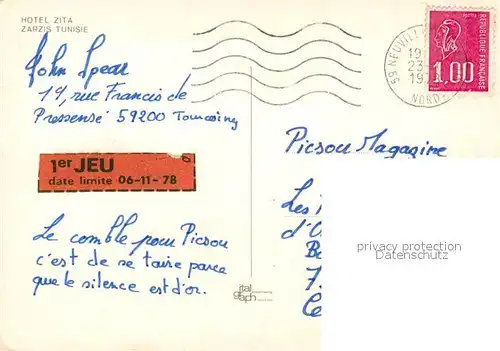 HOTEL ZITA
ZARZIS TUNISIE
John Spear
14, rue Francis de
Pressensé 59200 Tourcoing
1er JEU
date limite 06-11-78
Le comble pour Picsou
c'est de se taire parce
que le silence est d'or.
59 NEUVILL
19
23-
19
NORD
POSTES
REPUBLIQUE FRANÇAISE
1.00
Picsou Magazine
Les
d'
7.
Ce
privacy protection
Datenschutz
ital
graph